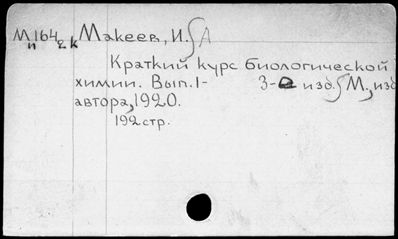 Мп164 2к Макеев, И. А
Краткий курс биологической
химии. Вып. 1- 3-е изд. М., изд.
автора, 1920.
192 стр.